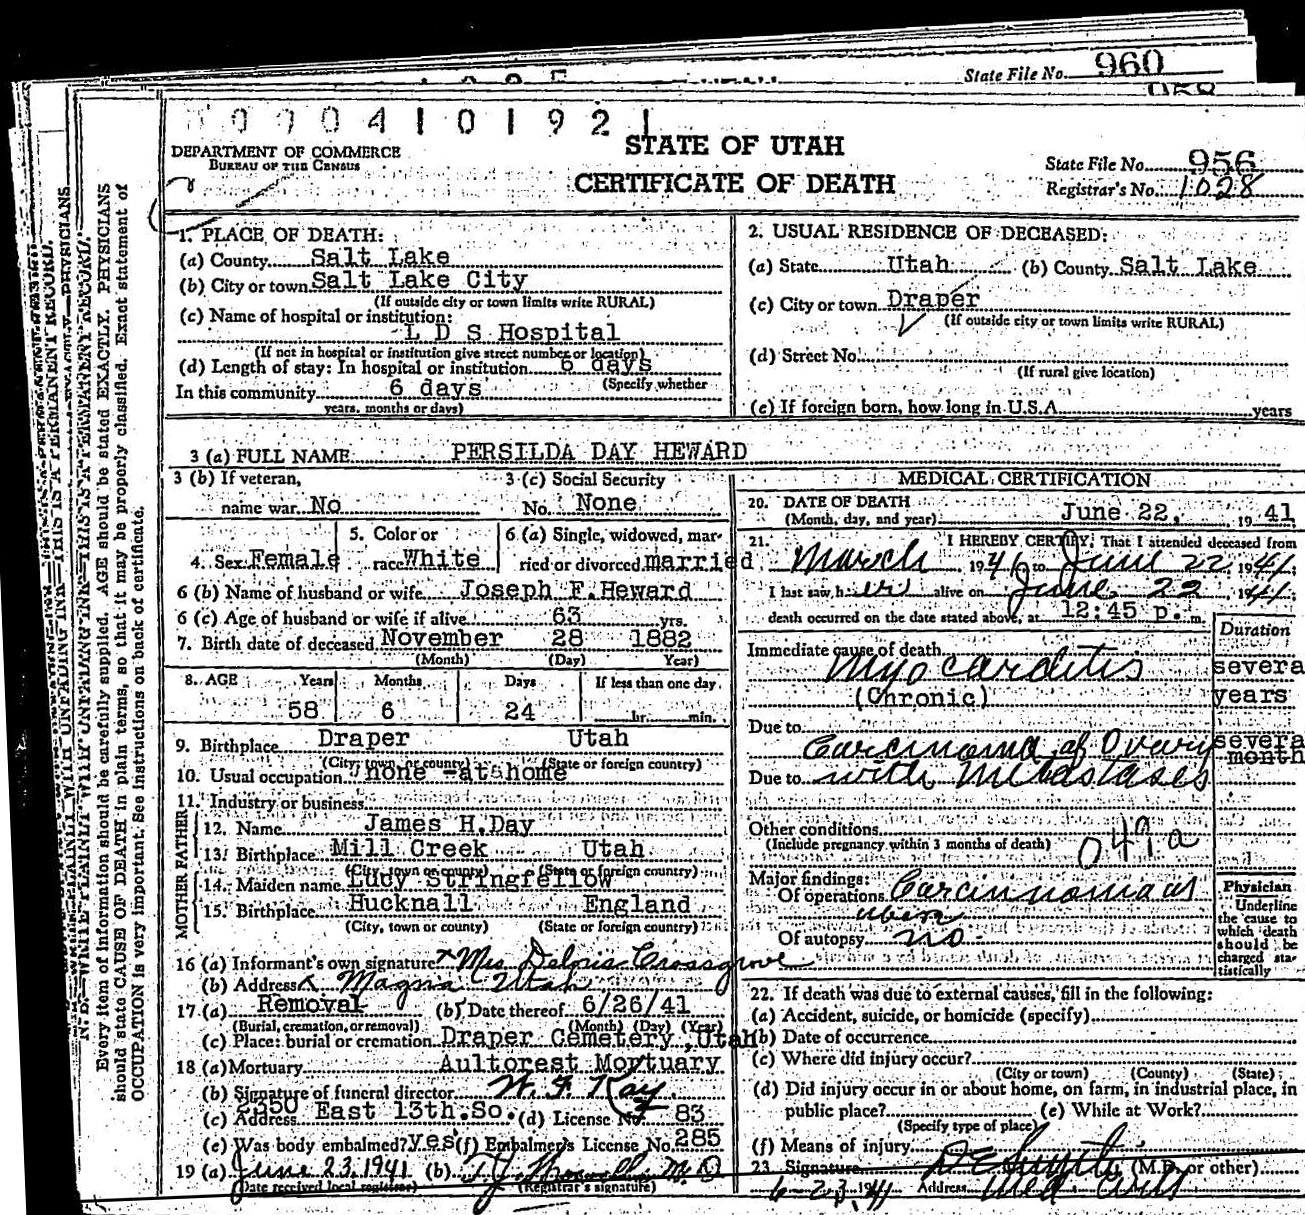 State File No. 960
0004101921
DEPARTMENT OF COMMERCE
BUREAU OF THE CENSUS
STATE OF UTAH
CERTIFICATE OF DEATH
State File No. 956
Registrar's No. 1028
1. PLACE OF DEATH:
(a) County Salt Lake
(b) City or town Salt Lake City
(If outside city or town limits write RURAL)
(c) Name of hospital or institution:
L D S Hospital
(If not in hospital or institution give street number or location)
(d) Length of stay: In hospital or institution 6 days
(Specify whether
In this community 6 days
years, months or days)
2. USUAL RESIDENCE OF DECEASED:
(a) State Utah (b) County Salt Lake
(c) City or town Draper
(If outside city or town limits write RURAL)
(d) Street No.
(If rural give location)
(e) If foreign born, how long in U.S.A. years
3 (a) FULL NAME PERSILDA DAY HEWARD
3 (b) If veteran,
name war No
3 (c) Social Security
No. None
4. Sex Female
5. Color or
race White
6 (a) Single, widowed, mar-
ried or divorced married
6 (b) Name of husband or wife Joseph F. Heward
6 (c) Age of husband or wife if alive 63 yrs.
7. Birth date of deceased November 28 1882
(Month) (Day) (Year)
8. AGE Years Months Days If less than one day
58 6 24 hr. min.
9. Birthplace Draper Utah
(City, town, or county) (State or foreign country)
10. Usual occupation none -at home
11. Industry or business
FATHER
12. Name James H. Day
13. Birthplace Mill Creek Utah
(City, town or county) (State or foreign country)
MOTHER
14. Maiden name Lucy Stringfellow
15. Birthplace Hucknall England
(City, town or county) (State or foreign country)
16 (a) Informant's own signature Mrs Deloris Crossgrove
(b) Address Magna Utah
17. (a) Removal (b) Date thereof 6/26/41
(Burial, cremation, or removal) (Month) (Day) (Year)
(c) Place: burial or cremation Draper Cemetery, Utah
18 (a) Mortuary Aultorest Mortuary
(b) Signature of funeral director
(c) Address East 13th. So. (d) License No. 83
(e) Was body embalmed? yes (f) Embalmer's License No. 285
19 (a) June 23, 1941 (b) M. D
(Date received local registrar) (Registrar's signature)
MEDICAL CERTIFICATION
20. DATE OF DEATH
(Month, day, and year) June 22, 1941
21. I HEREBY CERTIFY, That I attended deceased from
March 19 to June 22, 1941
I last saw her alive on June 22 1941;
death occurred on the date stated above, at 12:45 p. m.
Duration
Immediate cause of death
Myocarditis severa
(Chronic) years
Due to
Carcinoma of Ovary severa
month
Due to with metastases
Other conditions
(Include pregnancy within 3 months of death)
049a
Major findings:
Of operations Carcinoma of
Of autopsy no
Physician
Underline
the cause to
which death
should be
charged sta-
tistically
22. If death was due to external causes, fill in the following:
(a) Accident, suicide, or homicide (specify)
(b) Date of occurrence
(c) Where did injury occur?
(City or town) (County) (State)
(d) Did injury occur in or about home, on farm, in industrial place, in
public place? (e) While at Work?
(Specify type of place)
(f) Means of injury
23. Signature (M.D. or other)
6-23, 1941 Address Med.
N. B.—WRITE PLAINLY WITH UNFADING INK—THIS IS A PERMANENT RECORD.
Every item of information should be carefully supplied. AGE should be stated EXACTLY. PHYSICIANS
should state CAUSE OF DEATH in plain terms, so that it may be properly classified. Exact statement of
OCCUPATION is very important. See instructions on back of certificate.